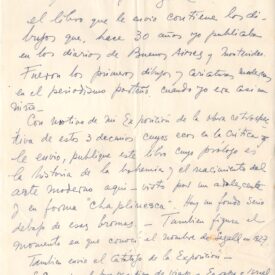 el libro que le envio contiene los di-
bujos que, hace 30 años yo publicaba
en los diarios de Buenos Aires y Montevideo
Fueron los primeros dibujos y caricaturas modernas
en el periodismo porteño cuando yo era casi un
niño.
Con motivo de mi Exposición de la obra retrospec-
tiva de estos 3 decenios cuyos ecos en la crítica
le envio, publiqué este libro cuyo prologo es
la historia de la bohemia y el nacimiento del
arte moderno aqui - visto por un adolescente
y en forma "chaplinesca". Hay un fondo serio
debajo de esas bromas. - Tambien figura el
momento en que conocí el nombre de Segall en 1927
Tambien envio el catálogo de la Exposición -